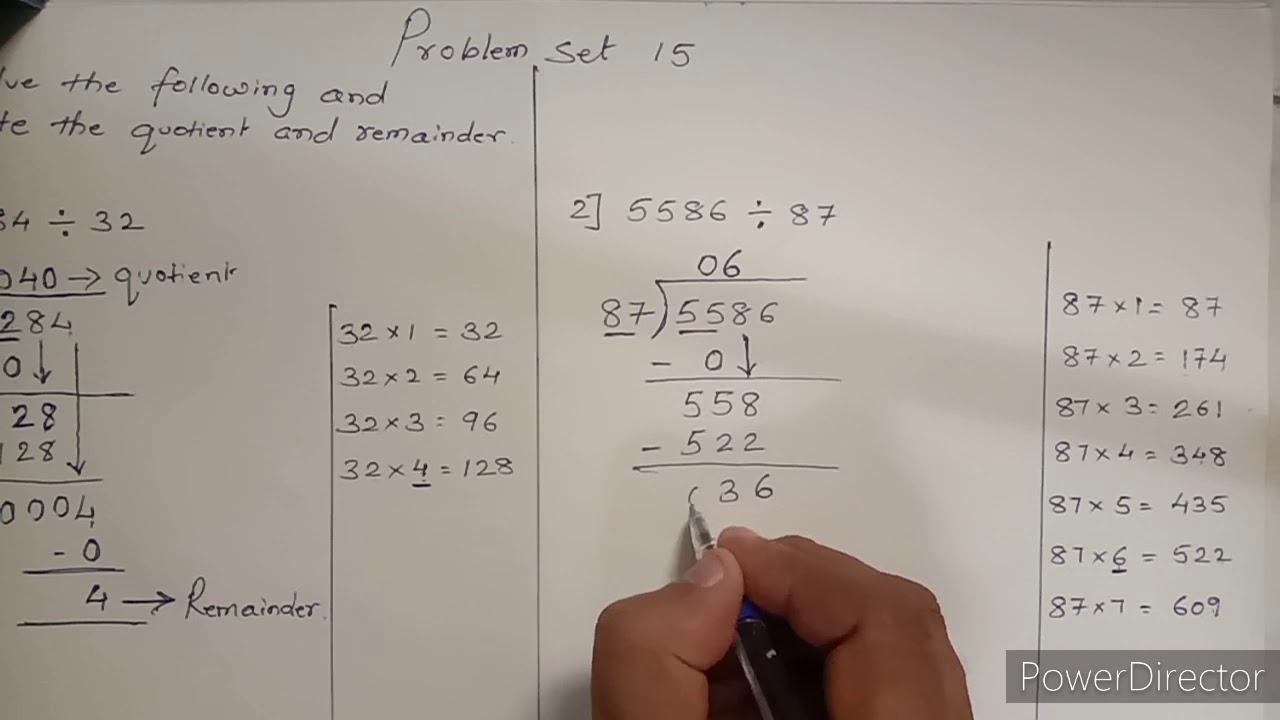 Problem Set 15
the following and
the quotient and remainder.
84 ÷ 32
040 → quotient
284
0
28
128
0004
- 0
4 → Remainder.
32 × 1 = 32
32 × 2 = 64
32 × 3 = 96
32 × 4 = 128
2] 5586 ÷ 87
06
87)5586
- 0
558
- 522
36
87 × 1 = 87
87 × 2 = 174
87 × 3 = 261
87 × 4 = 348
87 × 5 = 435
87 × 6 = 522
87 × 7 = 609
PowerDirector